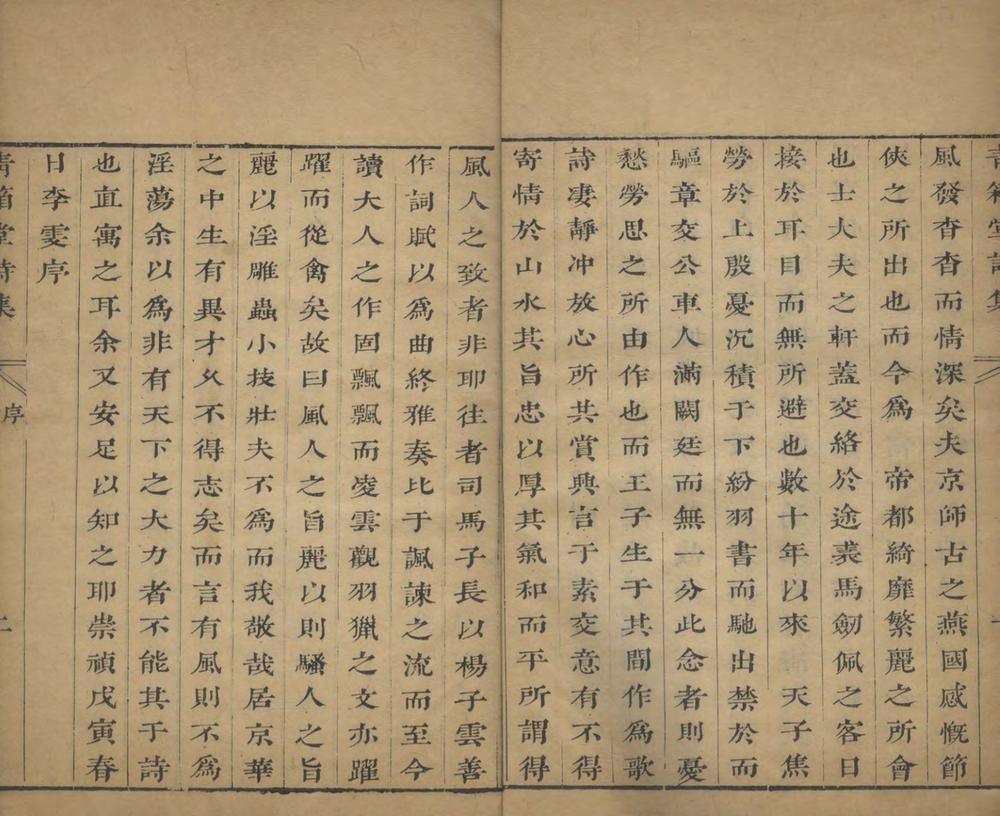 青箱堂詩集
風發杳杳而情深矣夫京師古之燕國感慨節
俠之所出也而今爲 帝都綺靡繁麗之所會
也士大夫之軒蓋交絡於途裘馬劒佩之客日
接於耳目而無所避也數十年以來 天子焦
勞於上殷憂沉積于下紛羽書而馳出禁於而
驅章交公車人滿闕廷而無一分此念者則憂
愁勞思之所由作也而王子生于其間作爲歌
詩凄靜冲放心所其賞興言于素交意有不得
寄情於山水其旨忠以厚其氣和而平所謂得
風人之致者非耶往者司馬子長以楊子雲善
作詞賦以爲曲終雅奏比于諷諫之流而至今
讀大人之作固飄飄而凌雲觀羽獵之文亦躍
躍而從禽矣故曰風人之旨麗以則騷人之旨
麗以淫雕蟲小技壯夫不爲而我敬哉居京華
之中生有異才久不得志矣而言有風則不爲
淫蕩余以爲非有天下之大力者不能其于詩
也直寓之耳余又安足以知之耶崇禎戊寅春
日李雯序
青箱堂詩集
序
二